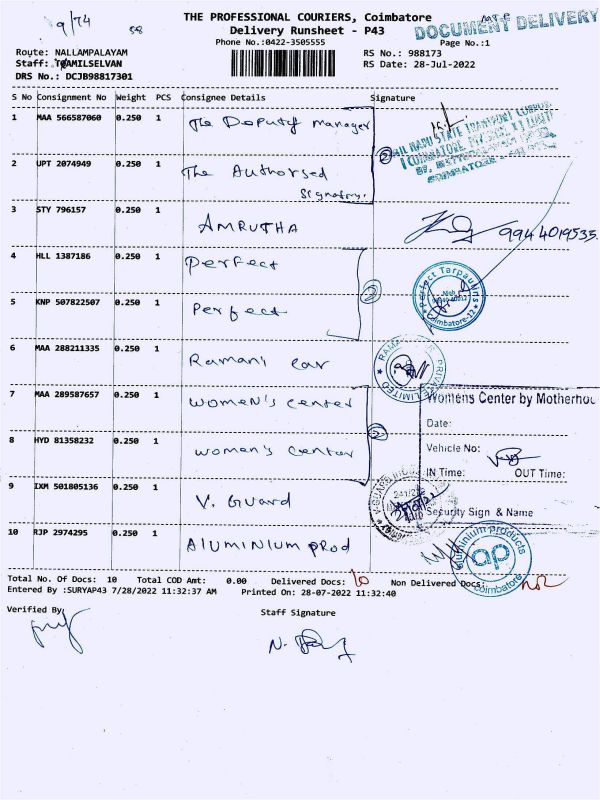 9/74 58
THE PROFESSIONAL COURIERS, Coimbatore
DOCUMENT DELIVERY
Delivery Runsheet - P43
Phone No.:0422-3505555
Page No.:1
Route: NALLAMPALAYAM
RS No.: 988173
Staff: TAMILSELVAN
RS Date: 28-Jul-2022
DRS No.: DCJB98817301
S No Consignment No Weight PCS Consignee Details Signature
1 MAA 566587060 0.250 1 The Deputy manager
TAMIL NADU STATE TRANSPORT CORPOR
2 UPT 2074949 0.250 1 The Authorsed
signatory.
2
3 STY 796157 0.250 1 AMRUTHA 9944019535.
4 HLL 1387186 0.250 1 Perfect
2
Perfect Tarpaulins
Coimbatore-12
5 KNP 507822507 0.250 1 Perfect
6 MAA 288211335 0.250 1 Ramani car
PRIVATE LIMITED
7 MAA 289587657 0.250 1 women's center
Womens Center by Motherhoo
Date:
2
8 HYD 81358232 0.250 1 women's center
Vehicle No:
IN Time: OUT Time:
9 IXM 501805136 0.250 1 V. Guard
Security Sign & Name
10 RJP 2974295 0.250 1 Aluminium prod
aluminium products
ap
coimbatore
Total No. Of Docs: 10 Total COD Amt: 0.00 Delivered Docs: 10 Non Delivered Docs:
Entered By :SURYAP43 7/28/2022 11:32:37 AM Printed On: 28-07-2022 11:32:40
Verified By Staff Signature